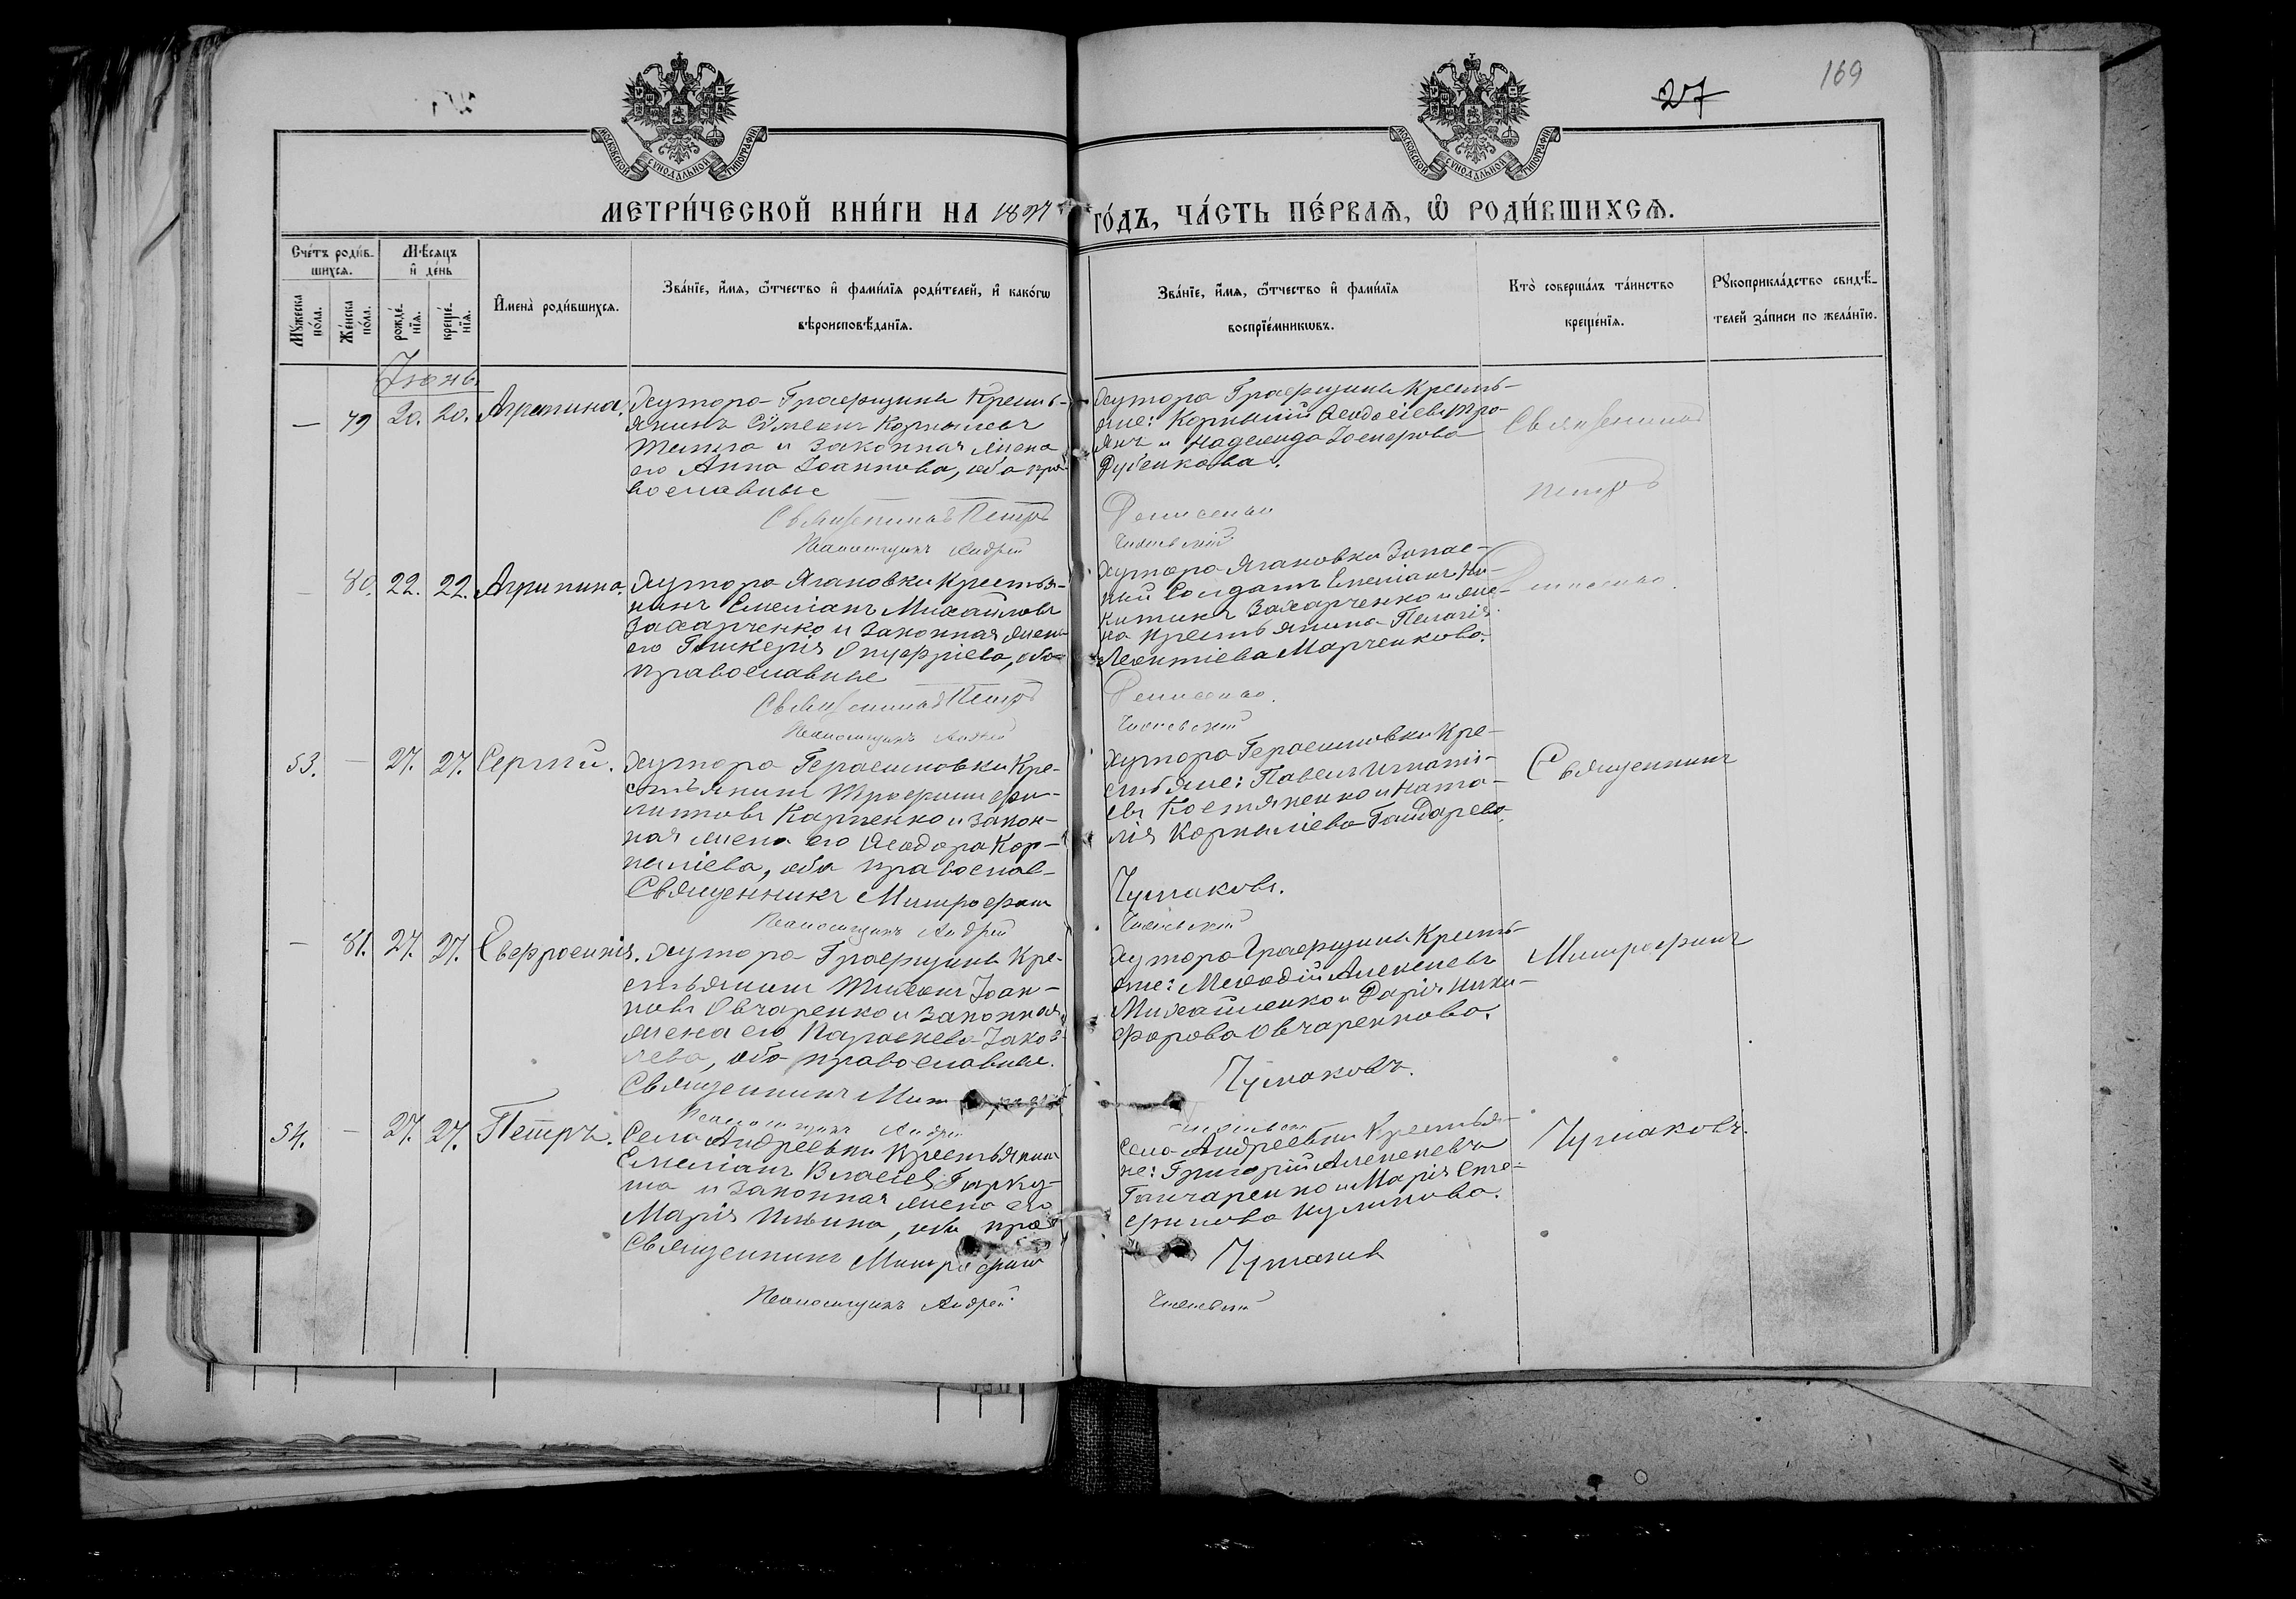 27
169
МОСКОВСКОЙ СѴНОДАЛЬНОЙ ТИПОГРАФІИ
МОСКОВСКОЙ СѴНОДАЛЬНОЙ ТИПОГРАФІИ
МЕТРИ́ЧЕСКОЙ КНИ́ГИ НА 1897 ГО́ДЪ, ЧА́СТЬ ПЕ́РВАѦ, Ѡ҆ РОДИ́ВШИХСѦ.
Сче́тъ роди́в-
шихсѧ.
Мꙋ́жеска по́ла.
Же́нска по́ла.
Мѣ́сѧцъ
и҆ де́нь
рожде́-
нїѧ.
креще́-
нїѧ.
И҆мена̀ роди́вшихсѧ.
Зва́нїе, и҆́мѧ, ѻ҆́тчество и҆ фами́лїѧ роди́телей, и҆ како́гѡ
вѣроисповѣ́данїѧ.
Зва́нїе, и҆́мѧ, ѻ҆́тчество и҆ фами́лїѧ
воспрїе́мникѡвъ.
Кто̀ соверша́лъ та́инство
креще́нїѧ.
Рꙋкоприкла́дство свидѣ́-
телей за́писи по жела́нїю.
Іюнь
— 79 20. 20. Агрипина.
хутора Графщины Кресть-
янинъ Сѵмеонъ Корнилiевъ
и законная жена
его Анна Іоаннова, оба пра-
вославные
Священникъ Петръ
Псаломщикъ Андрей
хутора Графщины Кресть-
яне: Корнилiй Ѳеодосiевъ
и Надежда
Дубенкова.
Денисенко
Священникъ
Петръ
Денисенко.
— 80. 22. 22. Агрипина.
хутора Ягановки Крестья-
нинъ Емелiанъ Михайловъ
Захарченко и законная жена
его Гликерiя Онуфрiева, оба
православные
Священникъ Петръ
Псаломщикъ Андрей
хутора Ягановки Запас-
ный Солдатъ Емелiанъ Ни-
китинъ Захарченко и же-
на крестьянина Пелагiя
Леонтiева Марченкова.
Денисенко.
53. — 27. 27. Сергiй.
хутора Герасимовки Кре-
стьянинъ Трофимъ Фи-
липповъ Карпенко и закон-
ная жена его Ѳеодора Кор-
нилiева, оба православ-
Священникъ Митрофанъ
Псаломщикъ Андрей
хутора Герасимовки Кре-
стьяне: Павелъ Игнатi-
евъ Костяненко и Ната-
лiя Корнилiева Гайдарева.
Чумаковъ.
Священникъ
— 81. 27. 27. Евфросинiя.
хутора Графщины Кре-
стьянинъ Тимоѳей Іоан-
новъ Овчаренко и законная
жена его Параскева Іаков-
лева, оба православные.
Священникъ
Псаломщикъ Андрей
хутора Графщины Кресть-
яне: Меѳодiй Алексiевъ
Михайленко и Дарiя Ники-
форова Овчаренкова.
Чумаковъ.
Митрофанъ
54. — 27. 27. Петръ.
Села Андреевки Крестьянинъ
Емелiанъ Власiевъ Гарку-
ша и законная жена его
Марiя Ильина, оба прав
Священникъ Митрофанъ
Псаломщикъ Андрей
Села Андреевки Крестья-
не: Григорiй Алексiевъ
Гончаренко и Марiя Сте-
фанова Куликова.
Чумаковъ
Чумаковъ.